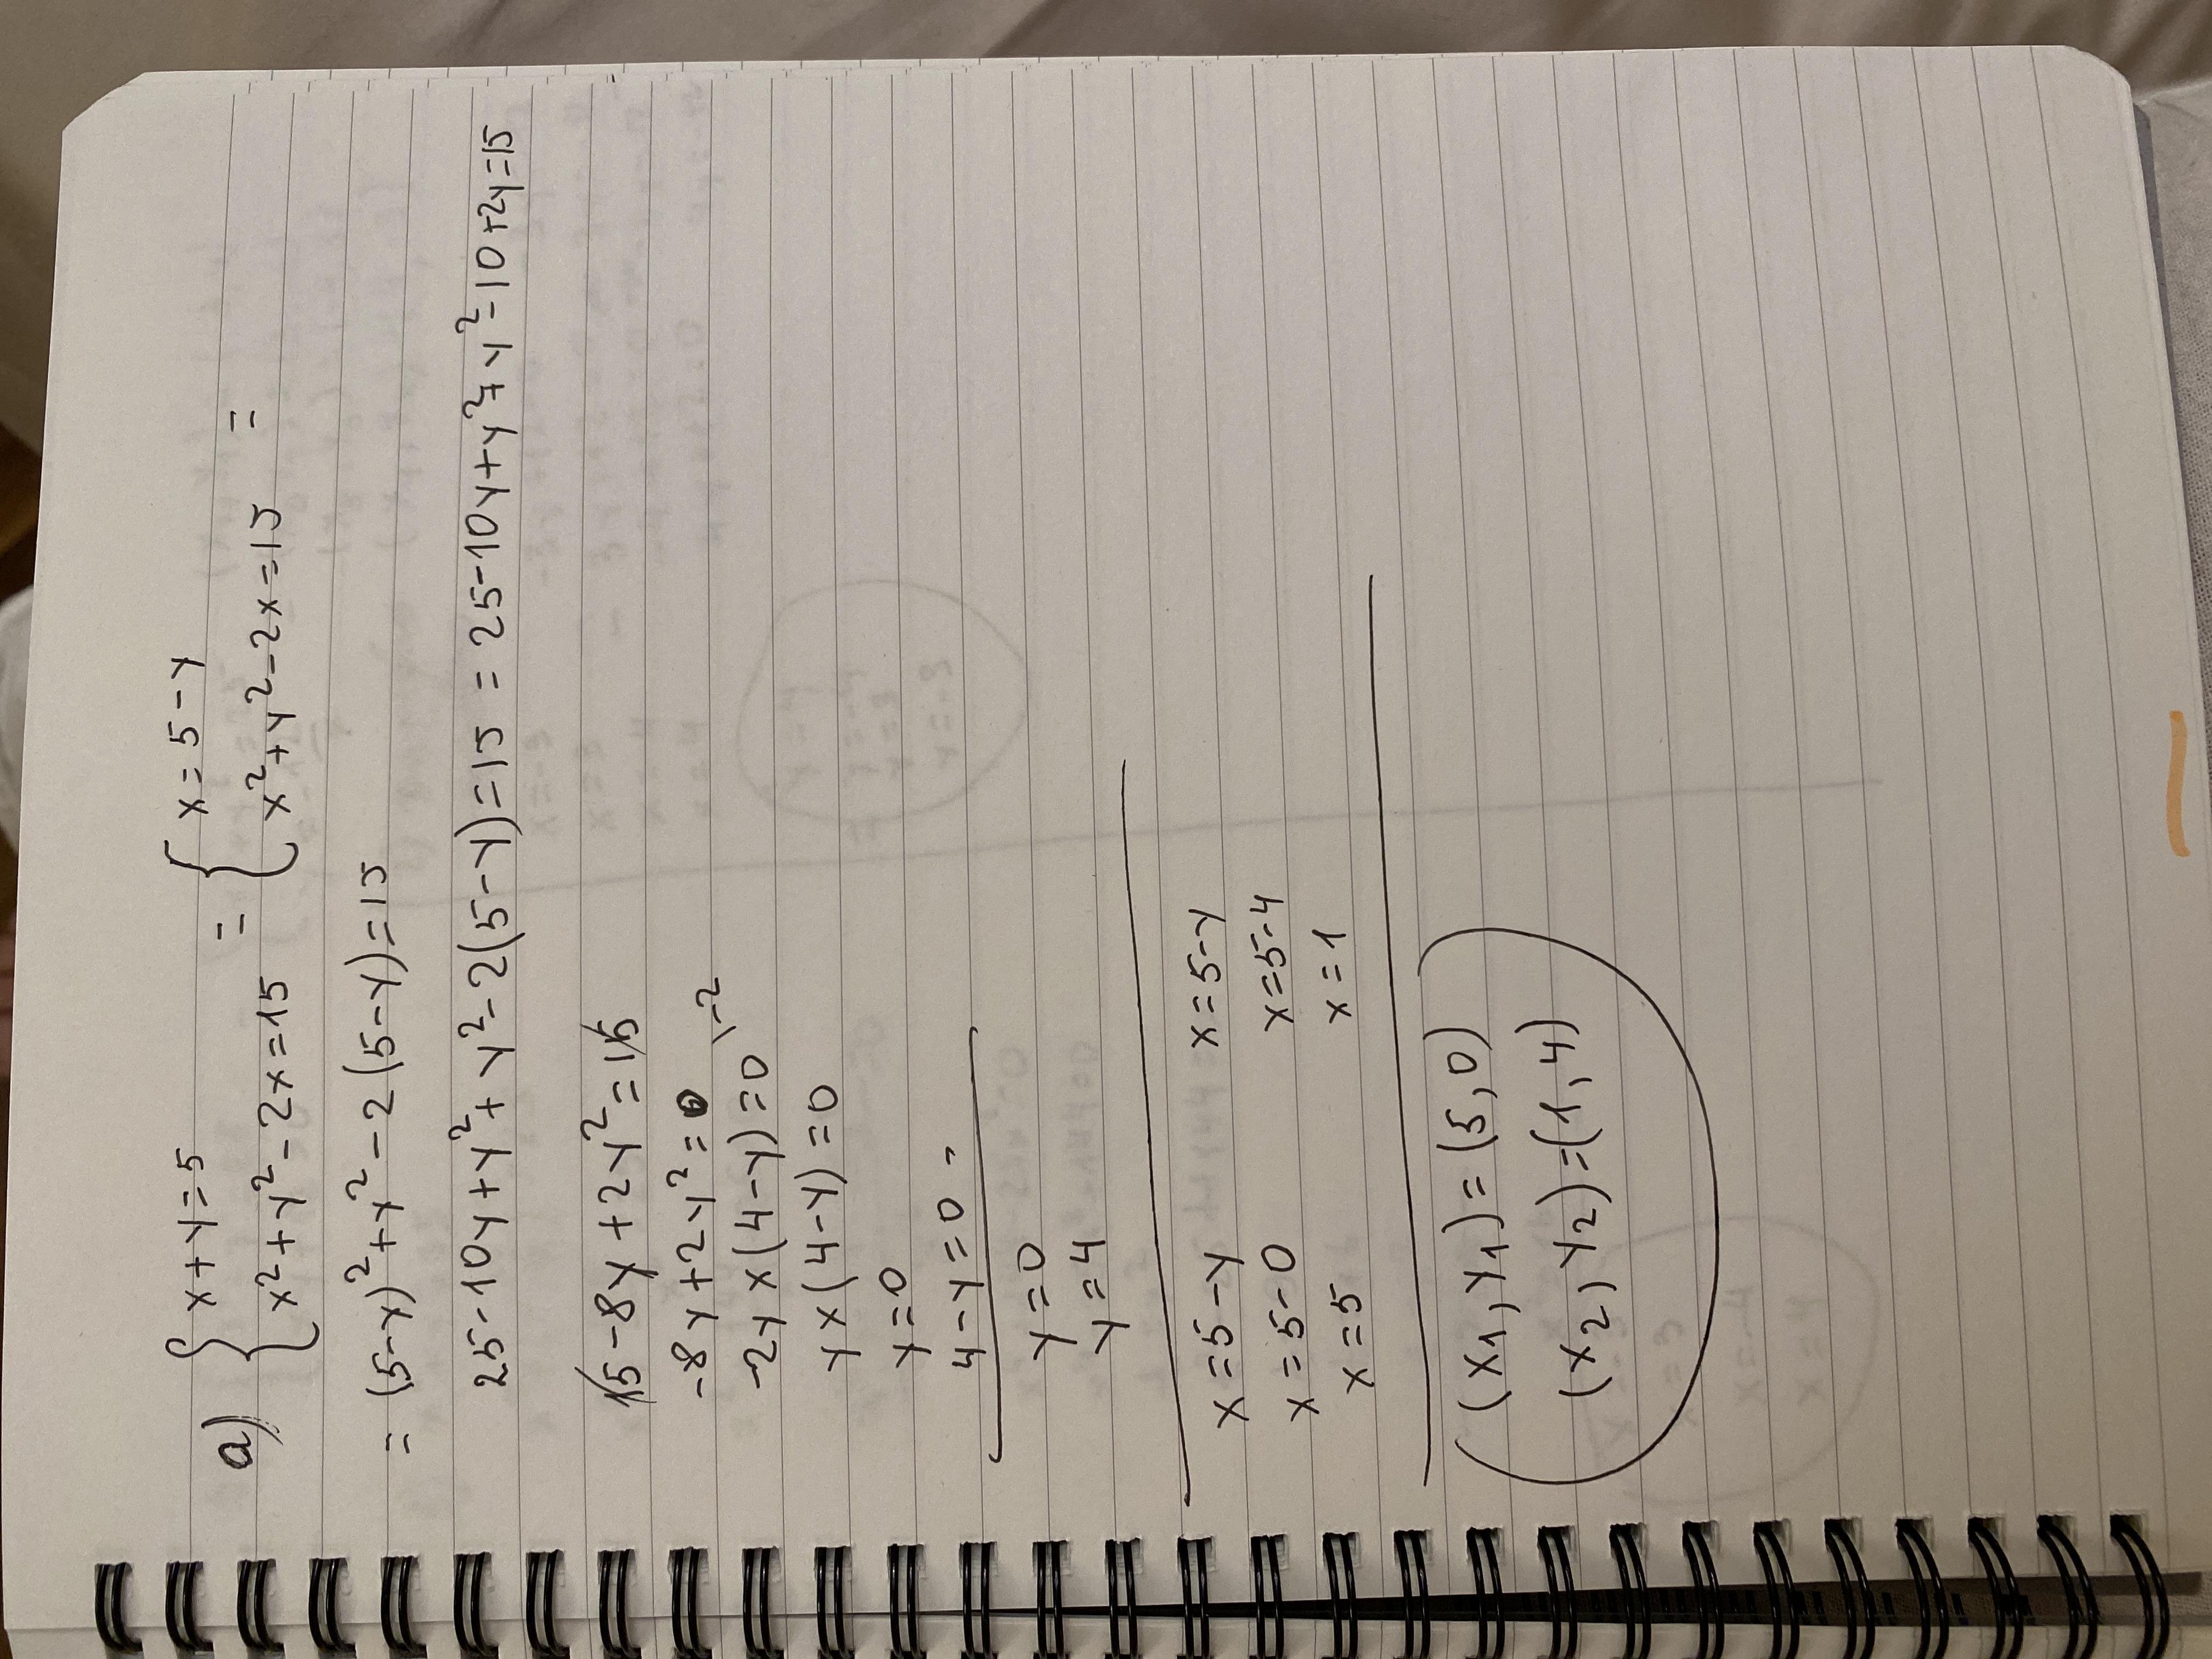 a) { x+y=5 = { x=5-y
{ x²+y²-2x=15 { x²+y²-2x=15 =
= (5-y)²+y²-2(5-y)=15
25-10y+y²+y²-2(5-y)=15 = 25-10y+y²+y²-10+2y=15
15-8y+2y²=15
-8y+2y²=0
-2y x(4-y)=0 \-2
y x(4-y)=0
y=0
4-y=0
y=0
y=4
x=5-y x=5-y
x=5-0 x=5-4
x=5 x=1
(x1,y1)=(5,0)
(x2,y2)=(1,4)